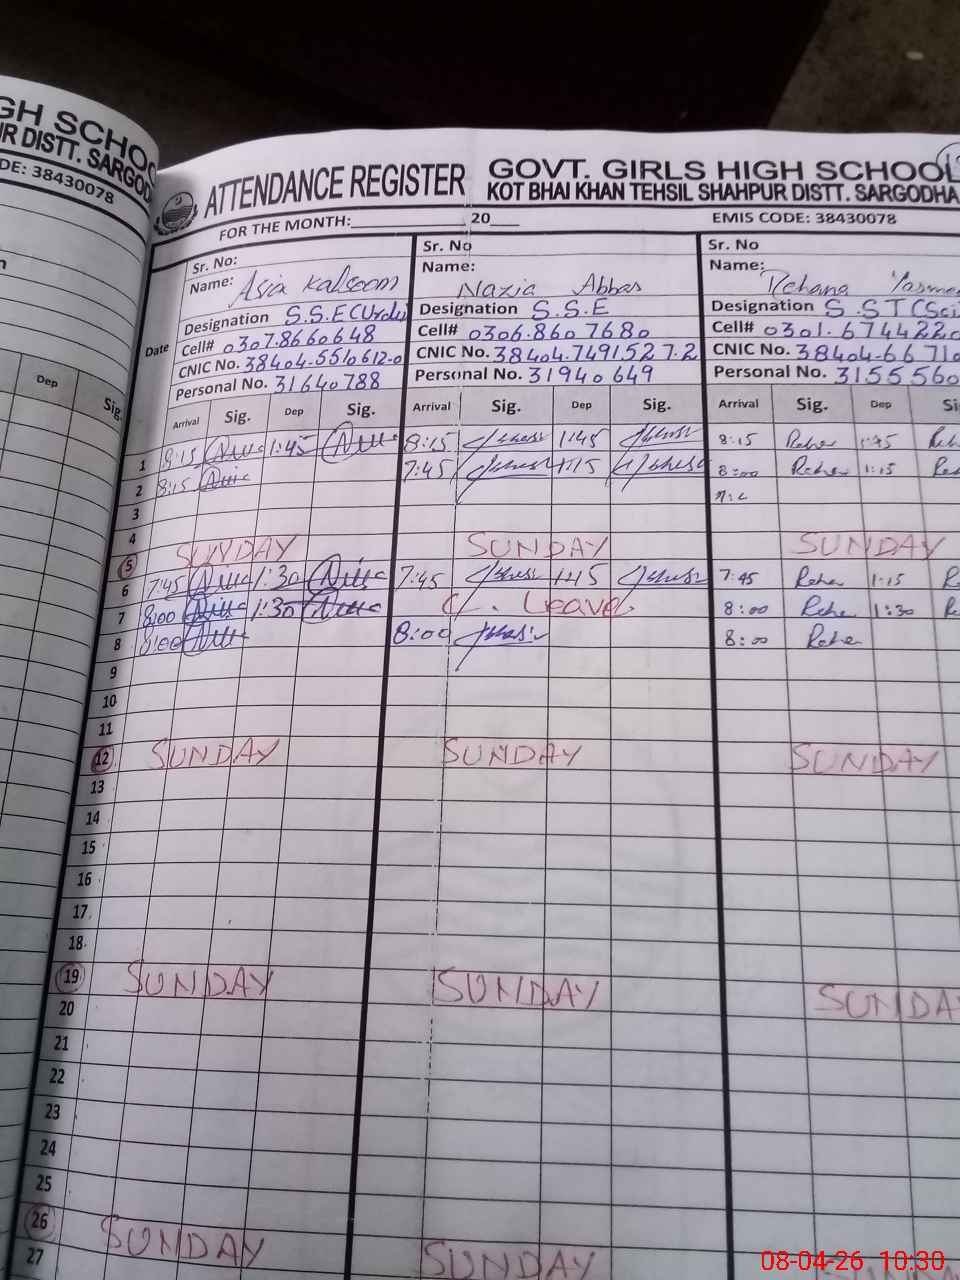 GH SCHOO
R DISTT. SARGOD
DE: 38430078
Dep
Sig.
ATTENDANCE REGISTER GOVT. GIRLS HIGH SCHOOL
KOT BHAI KHAN TEHSIL SHAHPUR DISTT. SARGODHA
FOR THE MONTH:__________ 20___ EMIS CODE: 38430078
Sr. No: Sr. No Sr. No
Name: Asia Kalsoom Name: Nazia Abbas Name: Rehana Yasme
Date Designation S.S.E(Urdu) Designation S.S.E Designation S.STCSci
Cell# 0307.8660648 Cell# 0306.8607680 Cell# 0301.6744220
CNIC No. 38404.5510612-0 CNIC No. 38404.7491527.2 CNIC No. 38404-66710
Personal No. 31640788 Personal No. 31940649 Personal No. 3155560
Arrival Sig. Dep Sig. Arrival Sig. Dep Sig. Arrival Sig. Dep Si
1 8:15 1:45 8:15 1:45 8:15 Rehe 1:45 Reh
2 8:15 7:45 1:15 8:00 Rehe 1:15 Re
3
4
5 SUNDAY SUNDAY SUNDAY
6 7:45 1:30 7:45 1:15 7:45 Rehe 1:15 R
7 8:00 1:30 C. Leave. 8:00 Rehe 1:30 R
8 8:00 8:00 8:00 Rehe
9
10
11
12 SUNDAY SUNDAY SUNDAY
13
14
15
16
17
18
19 SUNDAY SUNDAY SUNDA
20
21
22
23
24
25
26 SUNDAY SUNDAY
27
08-04-26 10:30